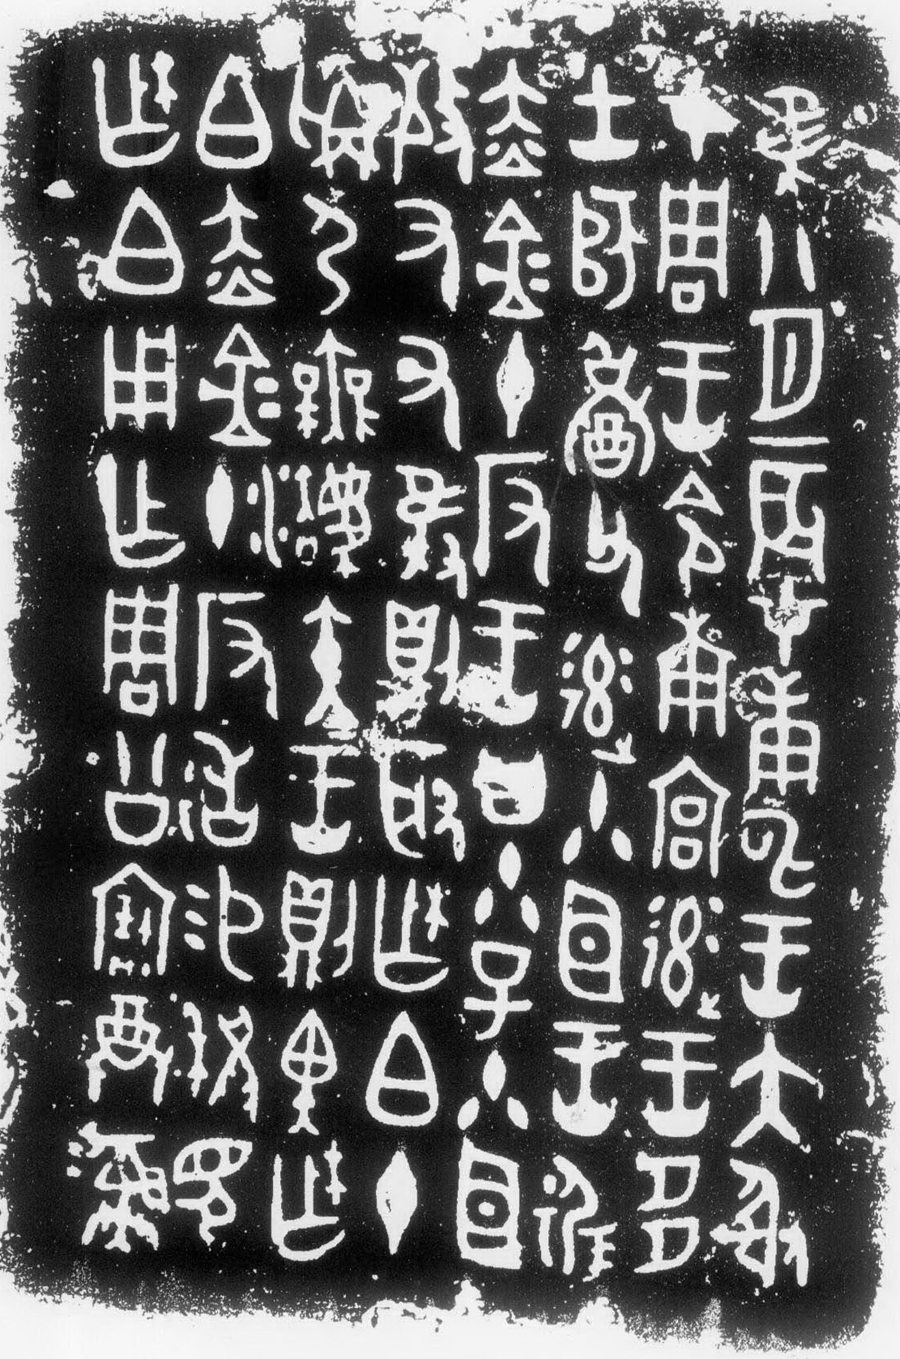 隹八月辰才庚申王大射
才周王令南宮率王多
士師父率小臣王遲
赤金十反王曰小子小臣
敬又又獲則取柞白十
爯弓無灋矢王則畀柞
白赤金十反徣易柷見
柞白用乍周公寶尊彝